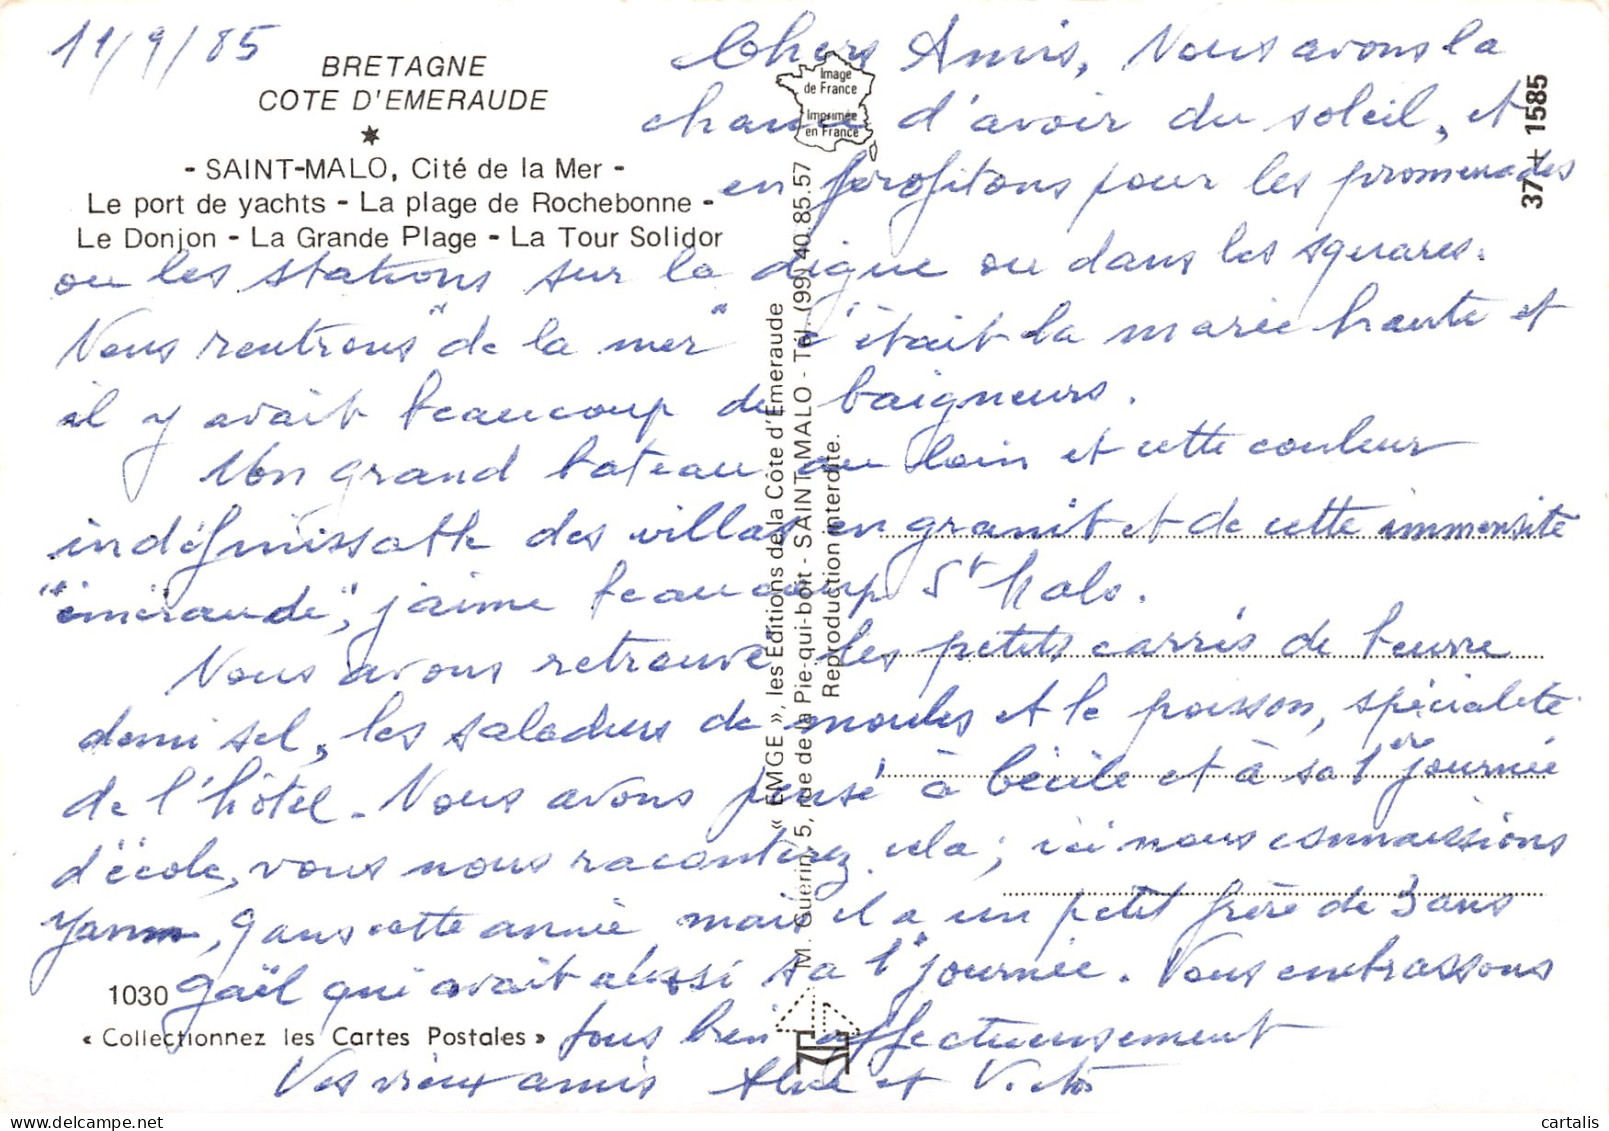 11/9/85
BRETAGNE
COTE D'EMERAUDE
- SAINT-MALO, Cité de la Mer -
Le port de yachts - La plage de Rochebonne -
Le Donjon - La Grande Plage - La Tour Solidor
Chers Amis, Nous avons la
chance d'avoir du soleil, et
en profitons pour les promenades
ou les stations sur la digue ou dans les squares.
Nous rentrons "de la mer" c'était la marée haute et
il y avait beaucoup de baigneurs.
Un grand bateau au loin et cette couleur
indéfinissable des villas en granit et de cette immensité
"émeraude", j'aime beaucoup St Malo.
Nous avons retrouvé les petits carrés de beurre
demi sel, les saladiers de moules et le poisson, spécialité
de l'hôtel. Nous avons pensé à Cécile et à sa 1ère journée
d'école, vous nous raconterez cela ; ici nous connaissions
Yann, 9 ans cette année mais il a un petit frère de 3 ans
Gaël qui avait aussi sa 1e journée. Vous embrassons
tous bien affectueusement
Vos vieux amis Alice et Victor
1030
« Collectionnez les Cartes Postales »
« EMGE », les Editions de la Côte d'Emeraude
M. Guérin, 5, rue de la Pie-qui-boit - SAINT MALO - Tél. (99) 40.85.57
Reproduction interdite.
Image
de France
Imprimée
en France
37 + 1585
cartalis
www.delcampe.net